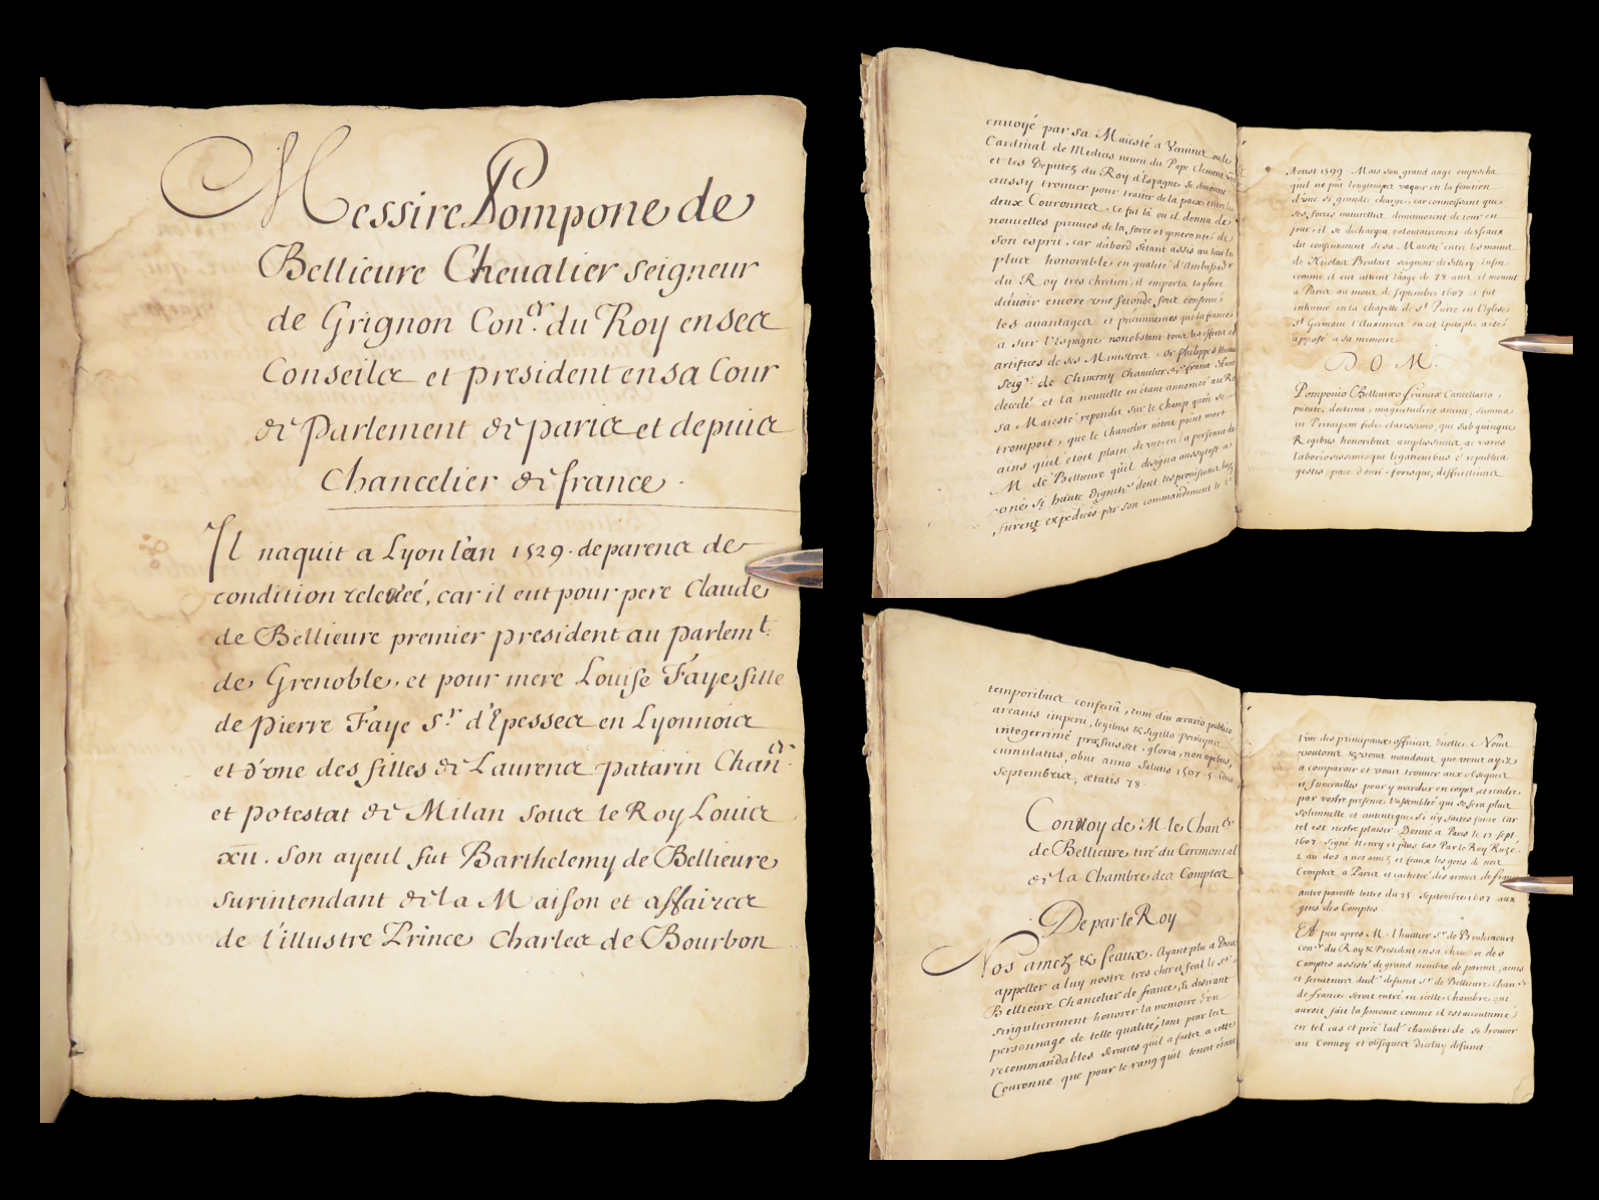 Messire Pompone de
Bellieure Cheualier seigneur
de Grignon Con.er du Roy en ses
Conseils et president en sa Cour
de Parlement de paris et depuis
Chancelier de france.
Il naquit a Lyon l'an 1529. de parens de
condition releveé, car il eut pour pere Claude
de Bellieure premier president au parlemt.
de Grenoble, et pour mere Louise Faye fille
de pierre Faye Sr d'Epesses en Lyonnois
et d'vne des filles de Laurens patarin Chaner.
et potestat de Milan sous le Roy Louis
xii. son ayeul fut Barthelemy de Bellieure
surintendant de la Maison et affaires
de l'illustre Prince Charles de Bourbon
enuoyé par sa Maiesté a Veruins ou le
Cardinal de Medicis neueu du Pape Clement
et les Deputez du Roy d'Espagne se
aussy trouuer pour traiter de la paix entre les
deux Couronnes. Ce fut là ou il donna de
nouuelles preuues de la force et generosité de
son esprit, car d'abord s'etant assis au lieu le
plus honorable en qualité d'Ambassadr
du Roy tres chrêtien, il emporta la gloire
d'auoir encore vne seconde fois
les auantages et préeminences que la france
a sur l'Espagne nonobstant tous les efforts et
artifices de ses Ministres. Or Philippe
Seigr. de Chiuerny Chancelier de france
decedé et la nouuelle en étant annoncée au Roy
sa Maiesté repondit sur le champ qu'on se
trompoit, que le Chancelier n'etoit point mort
ains qu'il étoit plain de vie, en la personne de
M. de Bellieure qu'il designa aussytost a
vne si haute dignité dont les prouisions luy
furent expediées par son commandement le 2e
Aoust 1599. Mais son grand aage empescha
qu'il ne pût longtemps vaquer en la fonction
d'vne si grande charge, car connoissant que
ses forces naturelles diminuoient de iour en
jour, il se dechargea volontairement des seaux
du consentement de sa Maiesté entre les mains
de Nicolas Brulart seigneur de Sillery. Enfin
comme il eut atteint l'aage de 78 ans il mourut
a Paris au mois de septembre 1607. et fut
inhumé en la chapelle de St Pierre en l'Eglise
St Germain l'Auxerrois ou cet Epitaphe a eté
apposé a sa memoire.
D. O. M.
Pomponio Bellieureo franciæ Cancellario,
pietate, doctrina, magnitudine animi, summa
in Principem fide clarissimo, qui sub quinque
Regibus honoribus amplissimis ac variis
laboriosissimisque legationibus è republica
gestis, pace domi forisque, difficillimis
temporibus confectâ, tum diu ærario publico
arcanis imperii, legibus & sigillo Principis
integerrimè præfuisset, gloria, non opibus,
cumulatus, obiit anno salutis 1607. 5.
Septembris, ætatis 78.
Convoy de M. le Chaner
de Bellieure tiré du Ceremonial
de la Chambre des Comptes
De par le Roy
Nos amez & feaux. Ayant plu a Dieu
appeller a luy nostre tres cher et feal le Sr.
Bellieure Chancelier de france, & desirant
singulierement honorer la memoire d'vn
personnage de telle qualité, tant pour les
recommandables seruices qu'il a faits a cette
Couronne que pour le rang qu'il tenoit étant
l'vn des principaux officiers d'icelle. Nous
voulons & vous mandons que vous ayez
a comparoir et vous trouuer aux obseques
et funerailles pour y marcher en corps, et rendre
par vostre presence l'assemblée qui se fera plus
solemnelle et autentique, si n'y faites faute car
tel est nostre plaisir. Donné a Paris le 13 sept.
1607. signé Henry et plus bas Par le Roy Ruzé.
Et au dos a nos amez et feaux les gens de nos
Comptes a Paris et cacheteé des armes de france
autre pareille lettre du 15 Septembre 1607. aux
gens des Comptes.
Et peu apres M. l'huillier Sr. de Boulancourt
coner du Roy & President en sa chambre des
Comptes assisté de grand nombre de parens, amis
et seruiteurs dudt. defunct Sr. de Bellieure Chaner
de france seroit entré en icelle chambre, qui
auroit fait la semonce comme il est accoutumé
en tel cas et prié ladt. chambre de se trouuer
au Conuoy et obseques dudict defunct.